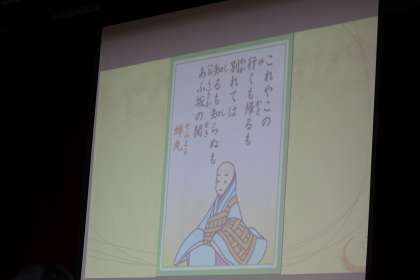 これやこの
行くも帰るも
別れては
知るも知らぬも
あふ坂の関
蝉丸